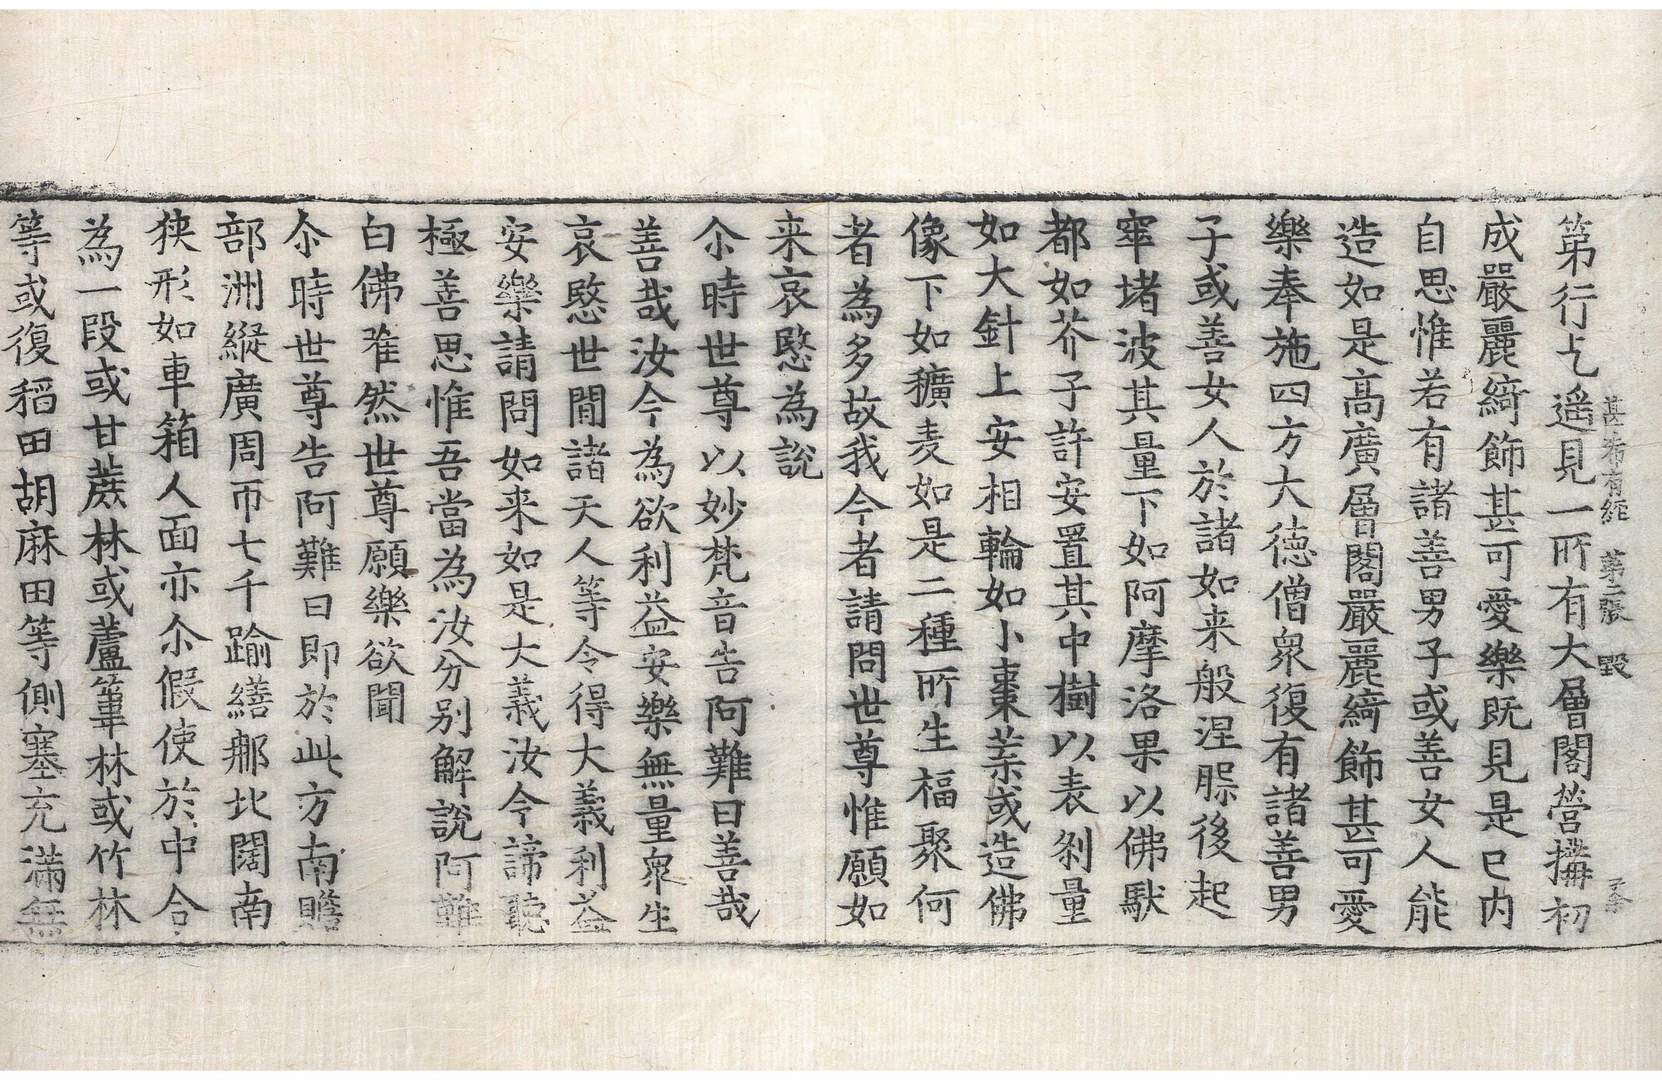 甚希有経 第二張 毀
第行乞遥見一所有大層閣営搆初
成嚴麗綺飾甚可愛樂既見是已内
自思惟若有諸善男子或善女人能
造如是髙廣層閣嚴麗綺飾甚可愛
樂奉施四方大德僧衆復有諸善男
子或善女人於諸如来般涅槃後起
窣堵波其量下如阿摩洛果以佛馱
都如芥子許安置其中樹以表刹量
如大針上安相輪如小棗葉或造佛
像下如穬麦如是二種所生福聚何
者為多故我今者請問世尊惟願如
来哀愍為説
尒時世尊以妙梵音告阿難曰善哉
善哉汝今為欲利益安樂無量衆生
哀愍世間諸天人等令得大義利益
安樂請問如来如是大義汝今諦聽
極善思惟吾當為汝分别解說阿難
白佛唯然世尊願樂欲聞
尒時世尊告阿難曰即於此方南贍
部洲縱廣周帀七千踰繕那北闊南
狹形如車箱人面亦尒假使於中合
為一段或甘蔗林或蘆葦林或竹林
等或復稻田胡麻田等側塞充滿無